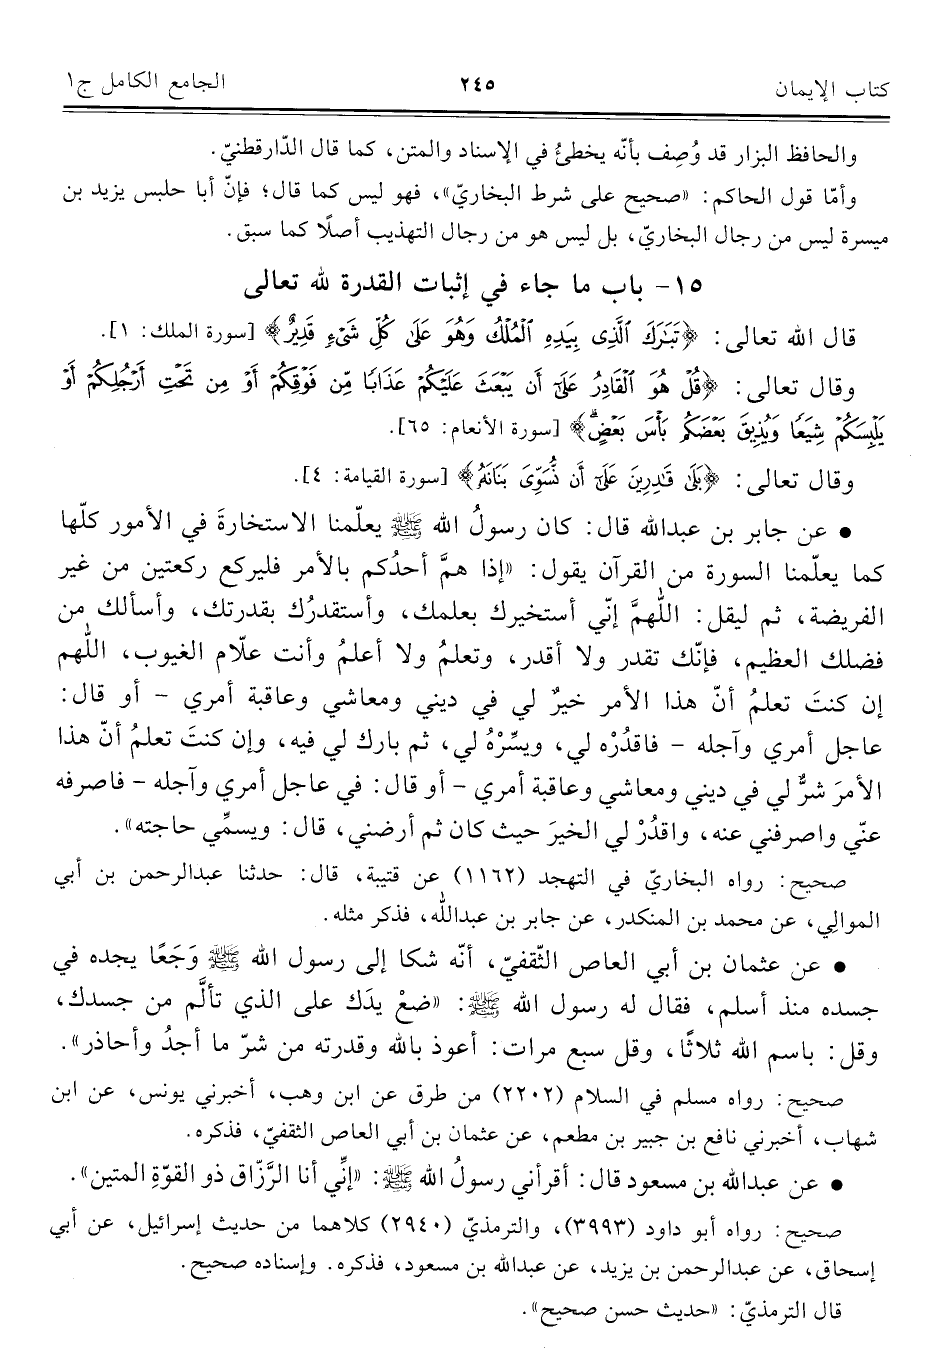 كتاب الإيمان ٢٤٥ الجامع الكامل ج١
والحافظ البزار قد وُصِف بأنّه يخطئُ في الإسناد والمتن، كما قال الدّارقطنيّ.
وأمّا قول الحاكم: «صحيح على شرط البخاريّ»، فهو ليس كما قال؛ فإنّ أبا حلبس يزيد بن
ميسرة ليس من رجال البخاريّ، بل ليس هو من رجال التهذيب أصلًا كما سبق.
١٥- باب ما جاء في إثبات القدرة لله تعالى
قال الله تعالى: ﴿تَبَٰرَكَ ٱلَّذِى بِيَدِهِ ٱلۡمُلۡكُ وَهُوَ عَلَىٰ كُلِّ شَىۡءٖ قَدِيرٌ﴾ [سورة الملك: ١].
وقال تعالى: ﴿قُلۡ هُوَ ٱلۡقَادِرُ عَلَىٰٓ أَن يَبۡعَثَ عَلَيۡكُمۡ عَذَابٗا مِّن فَوۡقِكُمۡ أَوۡ مِن تَحۡتِ أَرۡجُلِكُمۡ أَوۡ
يَلۡبِسَكُمۡ شِيَعٗا وَيُذِيقَ بَعۡضَكُم بَأۡسَ بَعۡضٍۗ﴾ [سورة الأنعام: ٦٥].
وقال تعالى: ﴿بَلَىٰ قَٰدِرِينَ عَلَىٰٓ أَن نُّسَوِّىَ بَنَانَهُۥ﴾ [سورة القيامة: ٤].
● عن جابر بن عبدالله قال: كان رسولُ الله ﷺ يعلّمنا الاستخارةَ في الأمور كلّها
كما يعلّمنا السورة من القرآن يقول: «إذا همَّ أحدُكم بالأمر فليركع ركعتين من غير
الفريضة، ثم ليقل: اللهمَّ إنّي أستخيرك بعلمك، وأستقدرُك بقدرتك، وأسألك من
فضلك العظيم، فإنّك تقدر ولا أقدر، وتعلمُ ولا أعلمُ وأنت علّام الغيوب، اللهم
إن كنتَ تعلمُ أنّ هذا الأمر خيرٌ لي في ديني ومعاشي وعاقبة أمري - أو قال:
عاجل أمري وآجله - فاقدُرْه لي، ويسِّرْهُ لي، ثم بارك لي فيه، وإن كنتَ تعلمُ أنّ هذا
الأمرَ شرٌّ لي في ديني ومعاشي وعاقبة أمري - أو قال: في عاجل أمري وآجله - فاصرفه
عنّي واصرفني عنه، واقدُرْ لي الخيرَ حيث كان ثم أرضني، قال: ويسمِّي حاجته».
صحيح: رواه البخاريّ في التهجد (١١٦٢) عن قتيبة، قال: حدثنا عبدالرحمن بن أبي
الموالي، عن محمد بن المنكدر، عن جابر بن عبدالله، فذكر مثله.
● عن عثمان بن أبي العاص الثّقفيّ، أنّه شكا إلى رسول الله ﷺ وَجَعًا يجده في
جسده منذ أسلم، فقال له رسول الله ﷺ: «ضعْ يدَك على الذي تألَّم من جسدك،
وقل: باسم الله ثلاثًا، وقل سبع مرات: أعوذ بالله وقدرته من شرّ ما أجدُ وأحاذر».
صحيح: رواه مسلم في السلام (٢٢٠٢) من طرق عن ابن وهب، أخبرني يونس، عن ابن
شهاب، أخبرني نافع بن جبير بن مطعم، عن عثمان بن أبي العاص الثقفيّ، فذكره.
● عن عبدالله بن مسعود قال: أقرأني رسولُ الله ﷺ: «إنِّي أنا الرَّزّاق ذو القوّةِ المتين».
صحيح: رواه أبو داود (٣٩٩٣)، والترمذيّ (٢٩٤٠) كلاهما من حديث إسرائيل، عن أبي
إسحاق، عن عبدالرحمن بن يزيد، عن عبدالله بن مسعود، فذكره. وإسناده صحيح.
قال الترمذيّ: «حديث حسن صحيح».